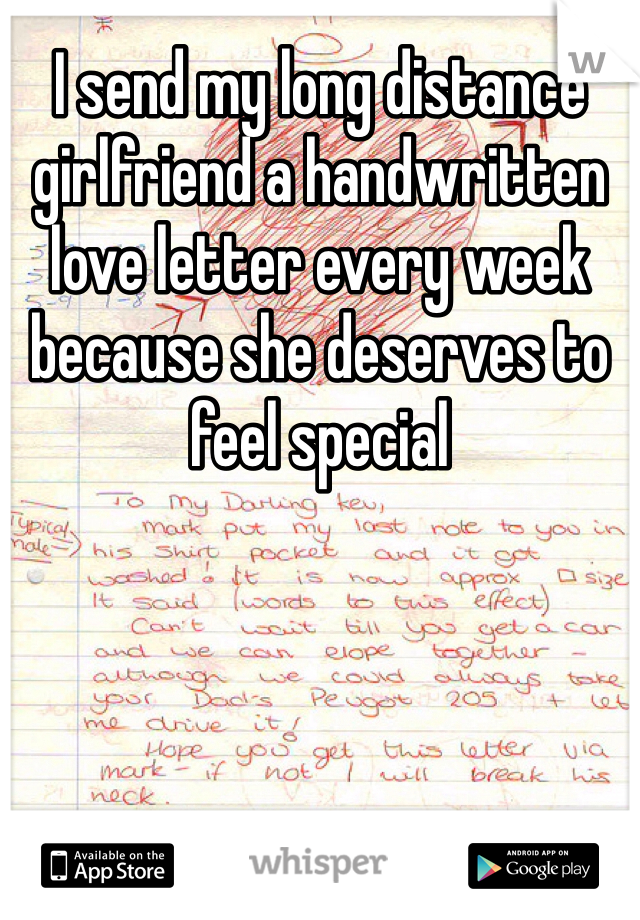 W
I send my long distance
girlfriend a handwritten
love letter every week
because she deserves to
feel special
To My Darling Kev,
Typical
male
mark put my last note to you in
his shirt pocket and it got
washed! It is now approx □ size
It said (words to this effect)
Can't wait till you get a car
and we can elope together -
although we could always take
your Dad's Peugot 205 + let
me drive it!
Hope you get this letter via
mark - if not I will break his
neck.
Available on the
App Store
whisper
ANDROID APP ON
Google play